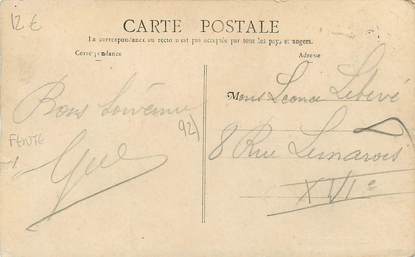 12 €
CARTE POSTALE
La correspondance au recto n'est pas acceptée par tous les pays étrangers.
Correspondance
Adresse
Bons Souvenirs
92)
FENTE
Mons Leonce Lebeve
8 Rue Lemarois
XVIe